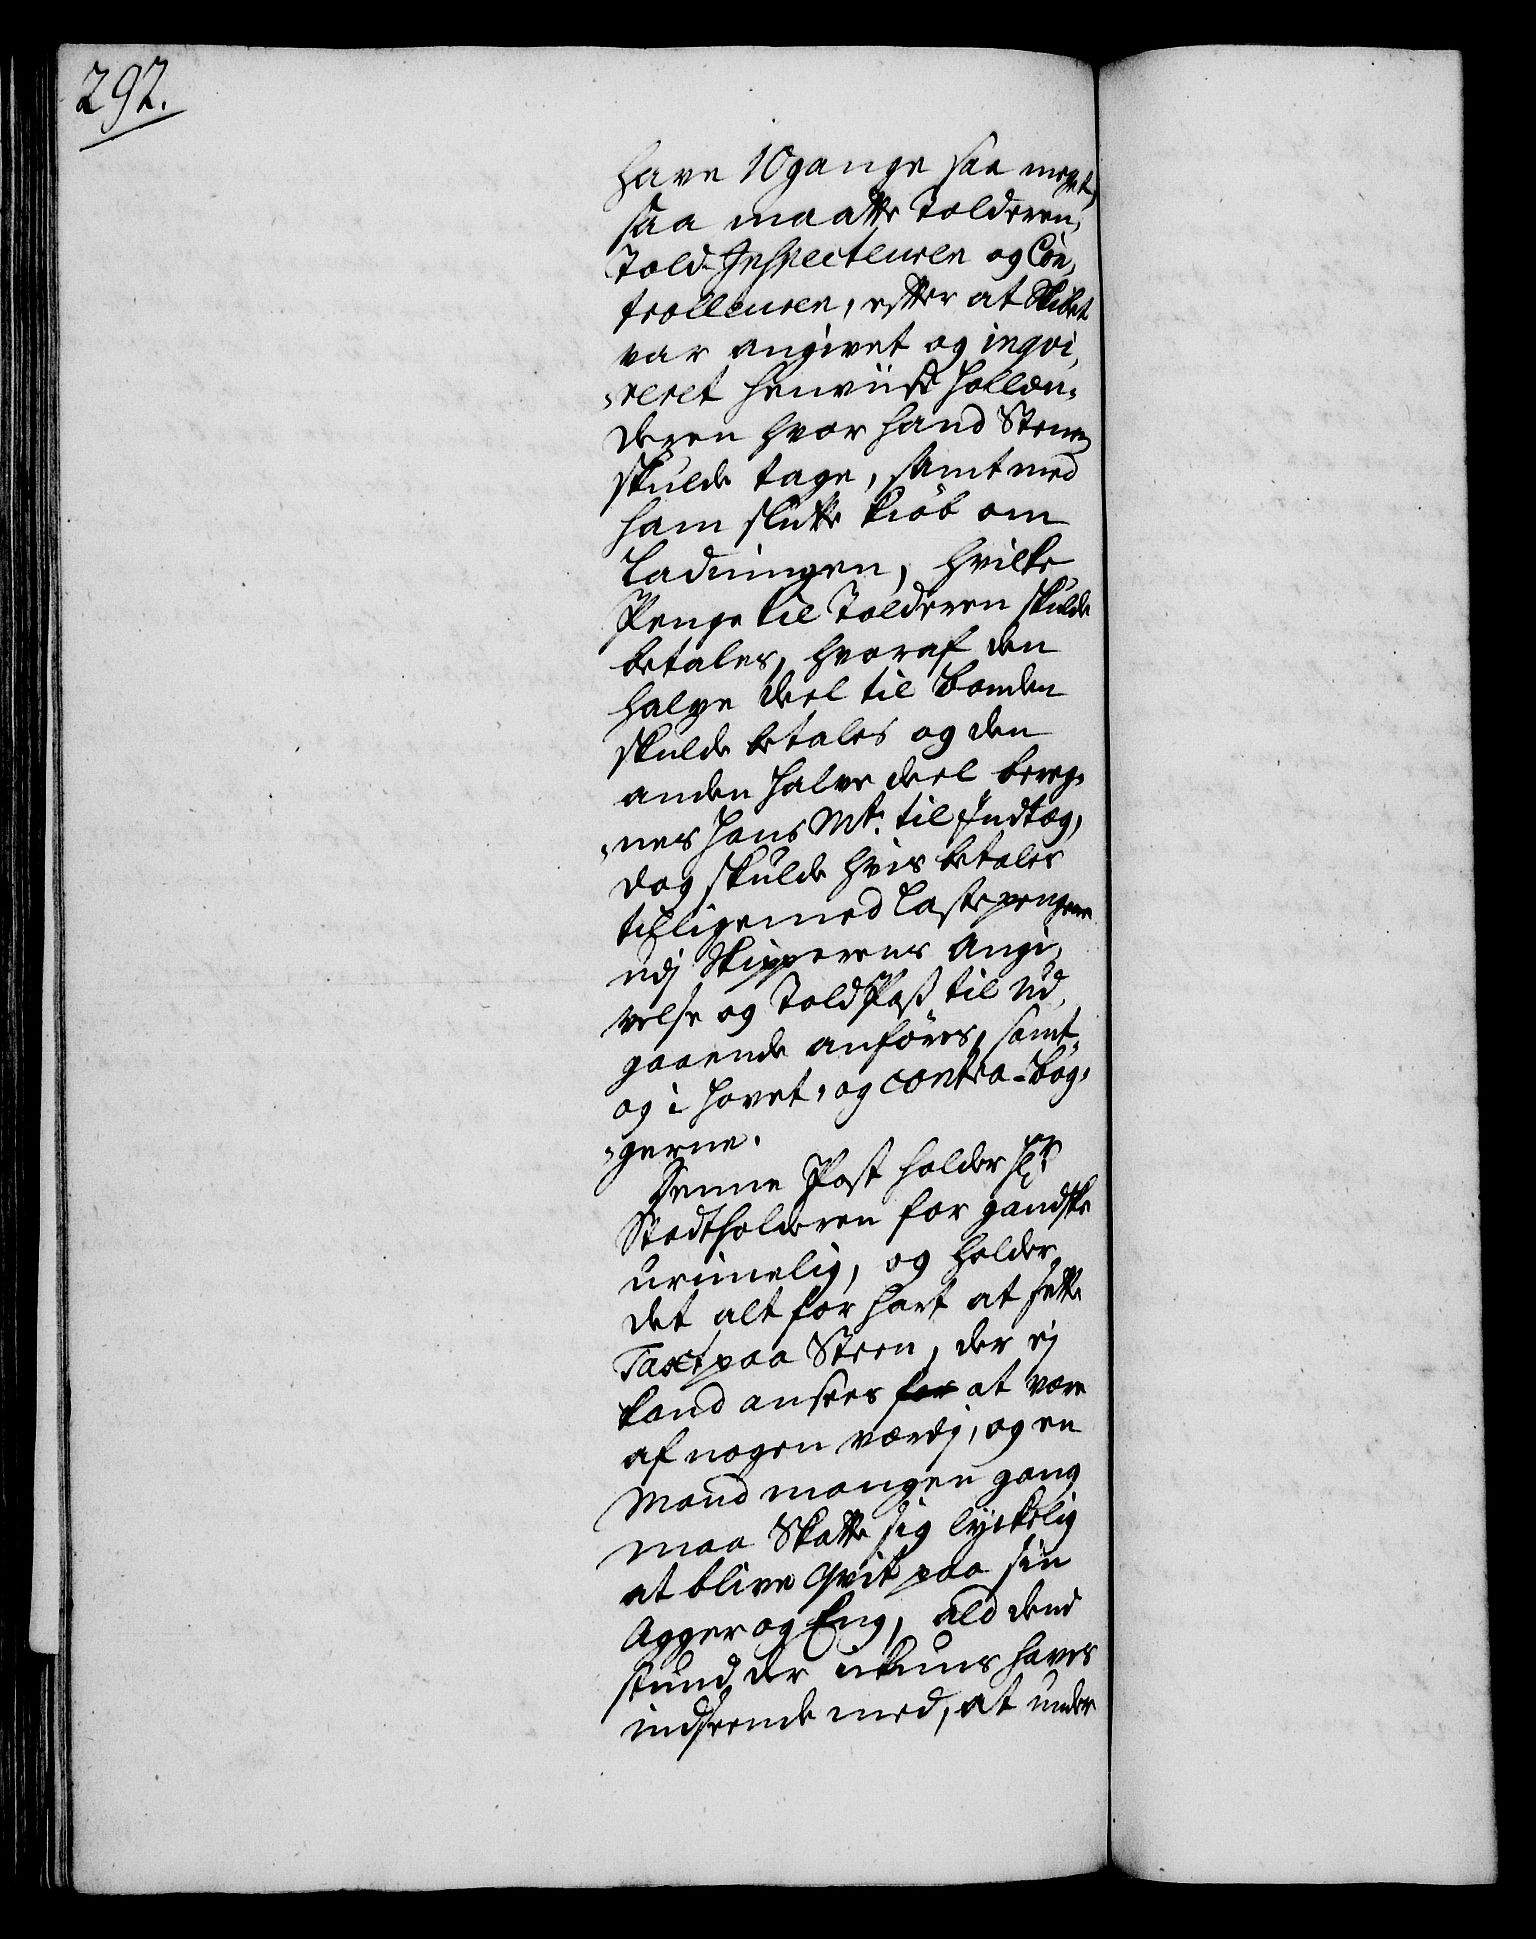 292.
have 10 gange saa meget,
saa maatte Tolderen,
Told-Inspecteuren og Con,
trolleuren, efter at Skibet
var angivet og inqvi,
reret henviise Hollæn,
deren hvor hand Steene
skulde tage, samt med
ham slutte kiöb om
Ladningen, hvilke
Penge til Tolderen skulde
betales, hvoraf den
halve deel til Bonden
skulde betales og den
anden halve deel bereg,
nes Hans Mt. til Indtægt,
dog skulde hvis betales
tilligemed Lastepengene
udj Skipperens Angi,
velse og Told Pass til ud,
gaaende anföres, samt
og i Hovet, og contra-Bög,
gerne.
Denne Post holder Hr.
Stadtholderen for gandske
urimelig, og holder
det alt for hart at sette
Taxt paa Steen, der ej
kand ansees for at være
af nogen værdj, og en
Mand mangen gang
maa Skatte sig lyckelig
at blive qvit paa sin
Agger og Eng, ald dend
stund der ikkuns haves
indseende med, at under